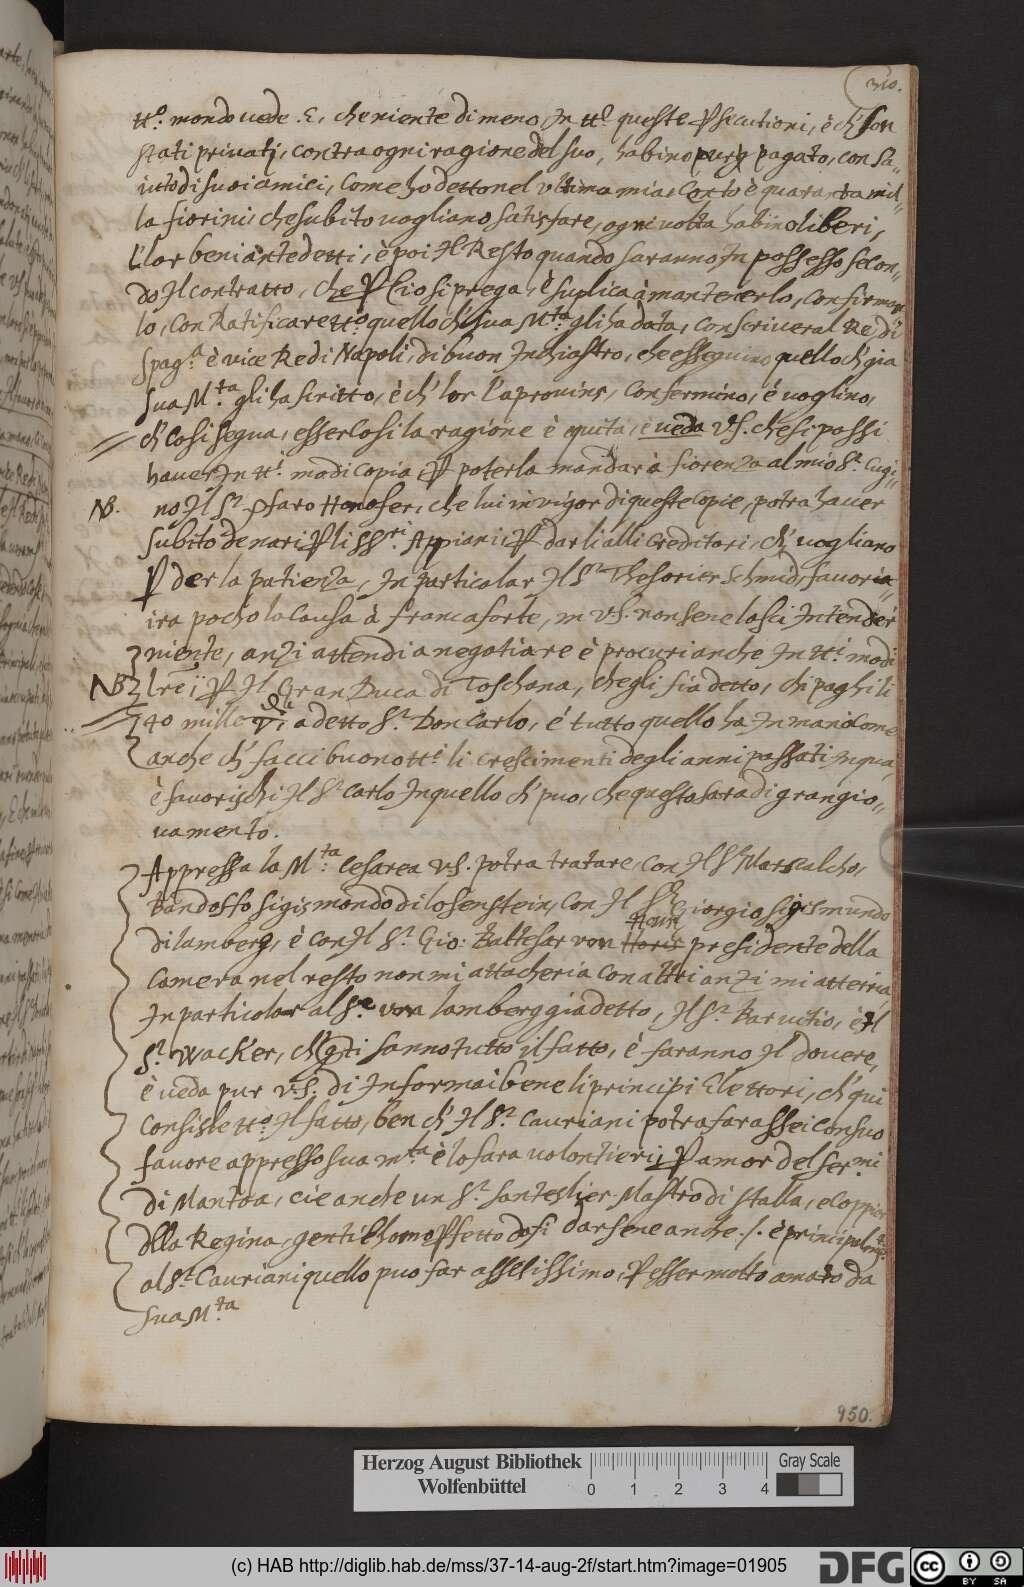 350.
tt.o mondo uede .E. che niente di meno, In tt.e queste Psecutioni, è ch' son
stati privati, contra ogni ragione del suo, habino pur pagato, con sa-
iuto di suoi amici, Come ho detto nel vltima mia, Certo è quaranta mil-
la fiorini, che subito uogliano satisfare, ogni uolta habino liberi,
L'lor beni antedetti, è poi Il Resto quando saranno In possesso secon-
do Il contratto, che P Cio si prega, è suplica à mantenerlo, confirmar
lo, con Ratificare tt.o quello ch' sua M.ta gli ha data, con scriver al Re di
Spag.a è vice Re di Napoli, di buon Inchiostro, che esseguino quello ch' gia
sua M.ta gli ha scritto, è ch' lor l'aprovino, confermino, é uoglino,
ch' Cosi segua, esser Cosi la ragione è equita, è ueda VS. che si possi
hauer In tt.i modi copia P poterla mandar à fiorenza al mio S.r Cugi-
NB. no Il S.r Honofer, che lui in vigor di queste copie, potra hauer
subito denari P li SS.ri Appiani P darli alli Creditori, ch' uogliano
P der la patienza, In particolar Il S.r Thesorier Schmid, favori-
ira pocho la Causa à francaforte, VS. non se ne lasci Intender
niente, anzi attendi a negotiare è procuri anche In tt.i modi
NB P Il Gran Duca di Toschana, che gli sia detto, ch' paghi li
40 mille a detto S.r Don Carlo, é tutto quello ha In mani Come
anche ch' facci buono tt.i li crescimenti degli anni passati Inqua,
è favorischi Il S.r Carlo In quello ch' puo, che questo sara di gran gio-
uamento.
Appresso la M.ta Cesarea VS. potra tratare, con Il S.r Marscalcho,
Sigismondo di losenstein, con Il S.r Giorgio Sigismundo
di lamberg, è con Il S.r Gio: Baltesar von presidente della
Camera nel resto non mi attacheria con altri anzi mi atterria
In particolar al S.re lamberg gia detto, Il S.r Barvitio, è Il
S.r Wacker, ch' q.ti sanno tutto il fatto, è faranno Il douere,
è ueda pur V.S. di Informar bene li principi Elettori, ch' qui
Consiste tt.o Il fatto, ben ch' Il S.r Cauriani potra far assei con suo
favore appresso sua M.ta è lo fara uolontieri, P amor del Ser.mi
Di Mantoa, ci e anche un S.r Mastro di stalla, e Coppier
della Regina, gentilhomo Pfetto darsene anche ./. è principalm.te
al S.r Cauriani quello puo far assesissimo, P esser molto amato da
sua M.ta
950.
Herzog August Bibliothek
Wolfenbüttel
0 1 2 3 4
Gray Scale
(c) HAB http://diglib.hab.de/mss/37-14-aug-2f/start.htm?image=01905
DFG
CC BY SA